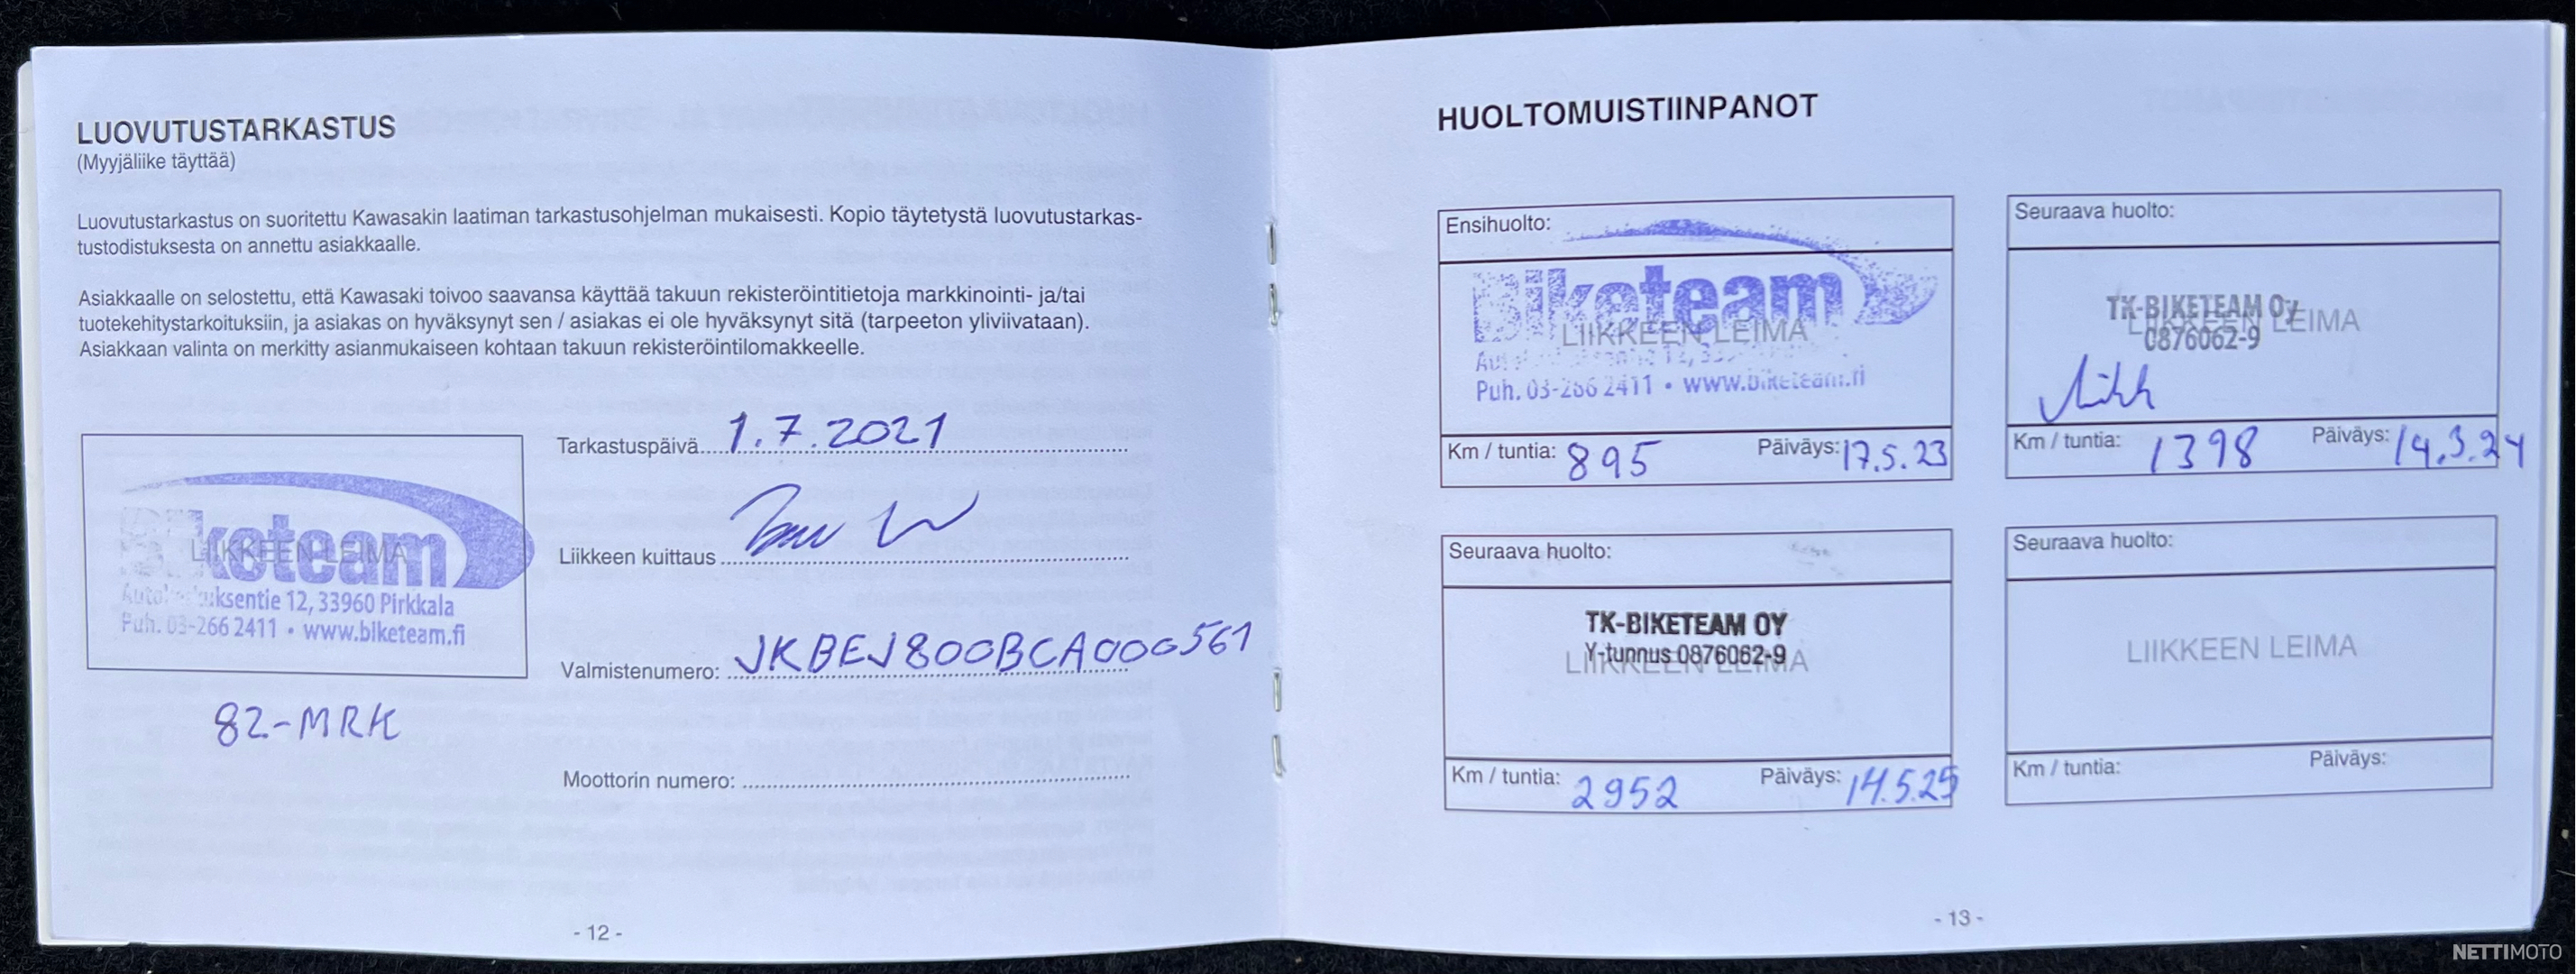 LUOVUTUSTARKASTUS
(Myyjäliike täyttää)
Luovutustarkastus on suoritettu Kawasakin laatiman tarkastusohjelman mukaisesti. Kopio täytetystä luovutustarkas-
tustodistuksesta on annettu asiakkaalle.
Asiakkaalle on selostettu, että Kawasaki toivoo saavansa käyttää takuun rekisteröintitietoja markkinointi- ja/tai
tuotekehitystarkoituksiin, ja asiakas on hyväksynyt sen / asiakas ei ole hyväksynyt sitä (tarpeeton yliviivataan).
Asiakkaan valinta on merkitty asianmukaiseen kohtaan takuun rekisteröintilomakkeelle.
keteam
LIIKKEEN LEIMA
ksentie 12, 33960 Pirkkala
Puh. 03-266 2411 • www.biketeam.fi
82-MRK
Tarkastuspäivä 1.7.2021
Liikkeen kuittaus
Valmistenumero: JKBEJ800BCA000561
Moottorin numero:
- 12 -
HUOLTOMUISTIINPANOT
Ensihuolto:
Biketeam
LIIKKEEN LEIMA
Puh. 03-266 2411 • www.biketeam.fi
Km / tuntia: 895 Päiväys: 17.5.23
Seuraava huolto:
TK-BIKETEAM OY
LIIKKEEN LEIMA
0876062-9
Km / tuntia: 1398 Päiväys: 14.3.24
Seuraava huolto:
TK-BIKETEAM OY
Y-tunnus 0876062-9
LIIKKEEN LEIMA
Km / tuntia: 2952 Päiväys: 14.5.25
Seuraava huolto:
LIIKKEEN LEIMA
Km / tuntia: Päiväys:
- 13 -
NETTIMOTO